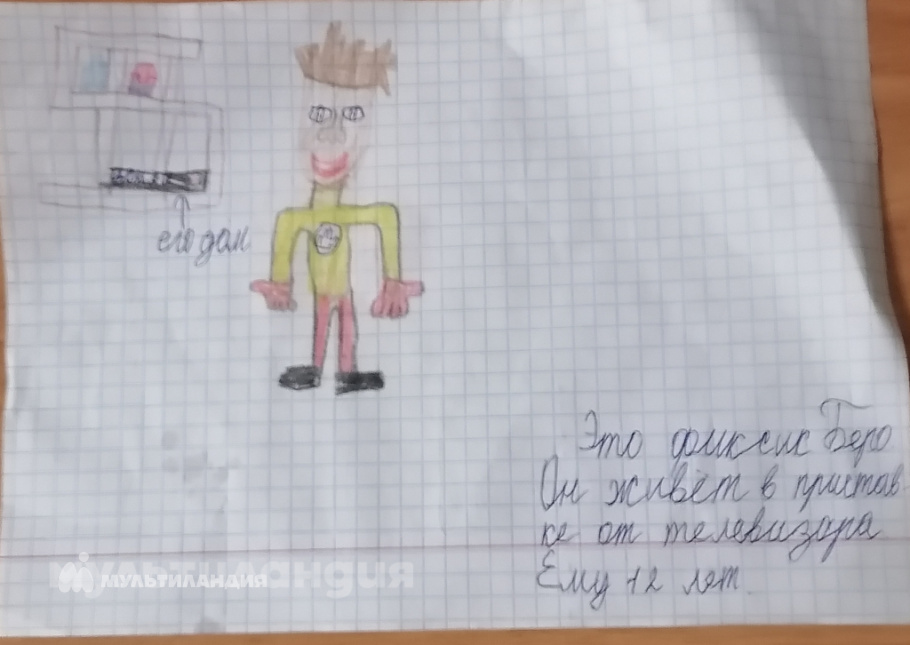 его дом
Это фиксик Беро
Он живёт в пристав
ке от телевизора
Ему 12 лет.
мультиландия
МУЛЬТИЛАНДИЯ